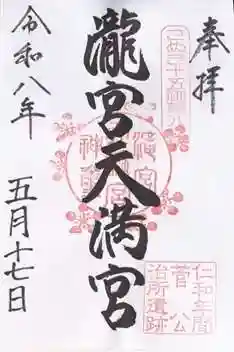 奉拝
瀧宮天満宮
令和八年
五月十七日
仁和年間
菅公
治所遺跡